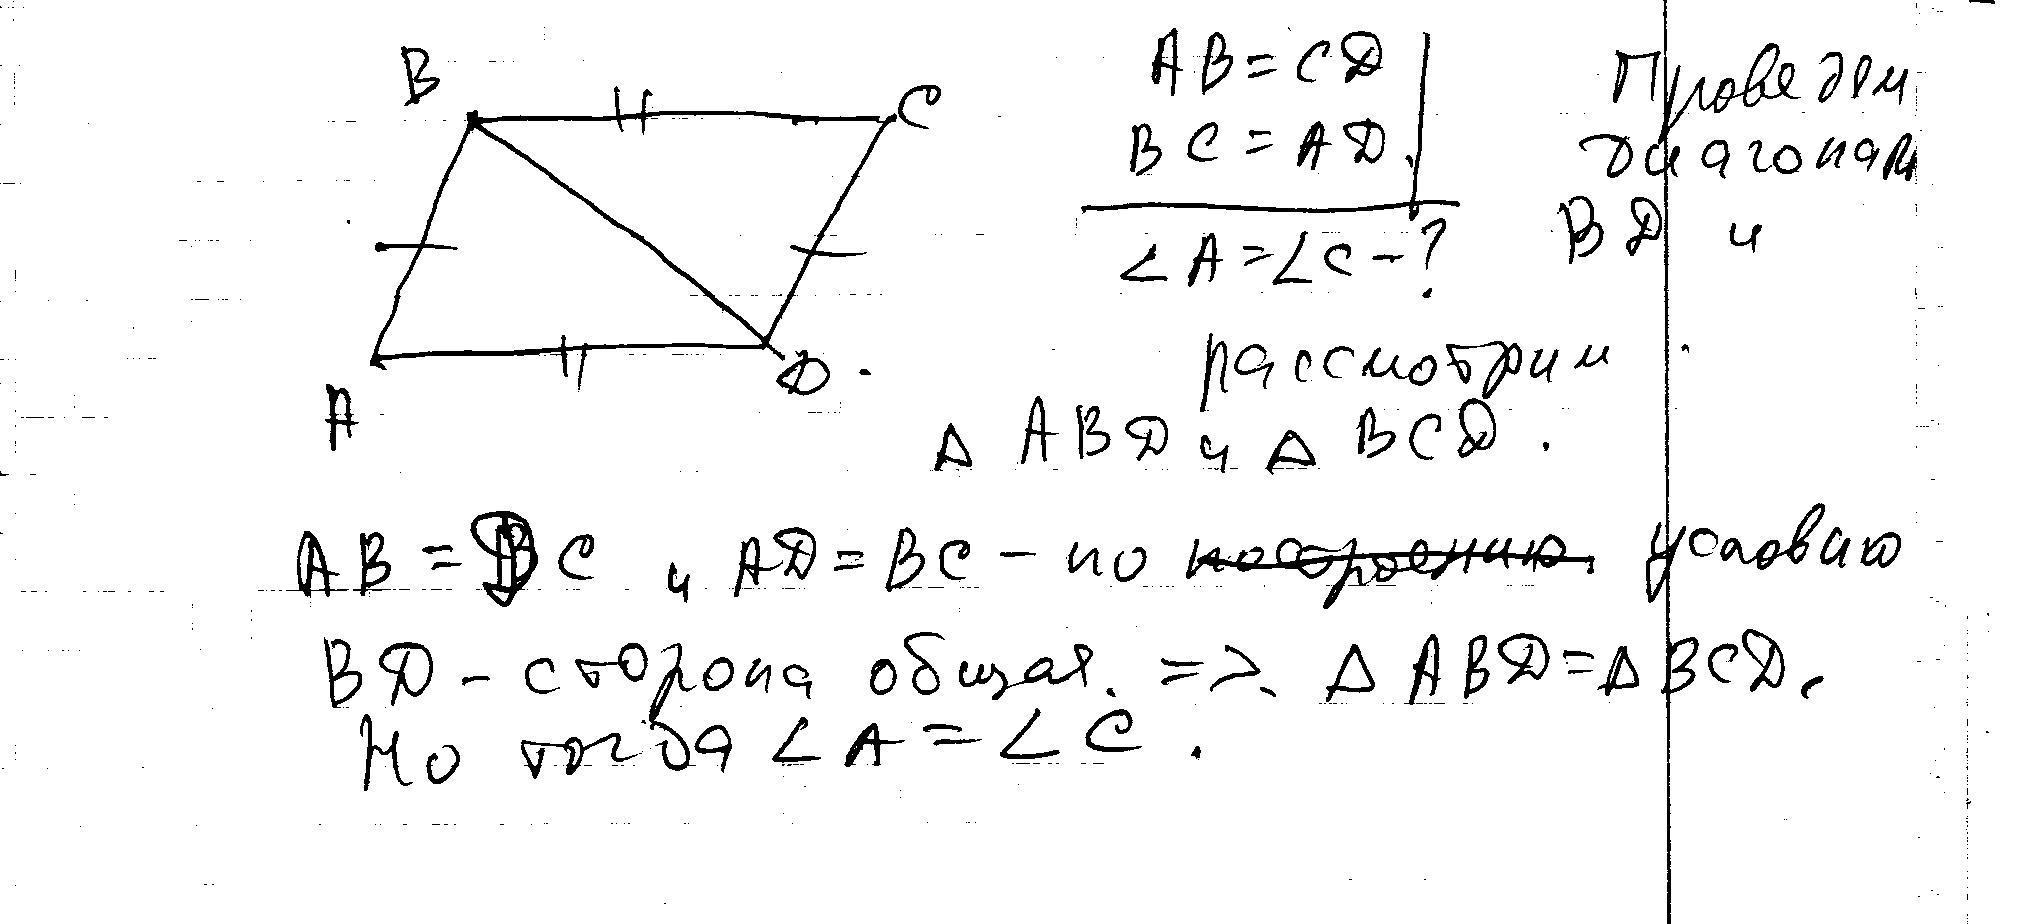 B
C
A
D.
AB = CD
BC = AD.
∠A = ∠C - ?
Проведём
диагональ
BD и
рассмотрим
△ ABD и △ BCD.
AB = DC и AD = BC - по построению условию
BD - сторона общая. => △ ABD = △ BCD.
Но тогда ∠A = ∠C.